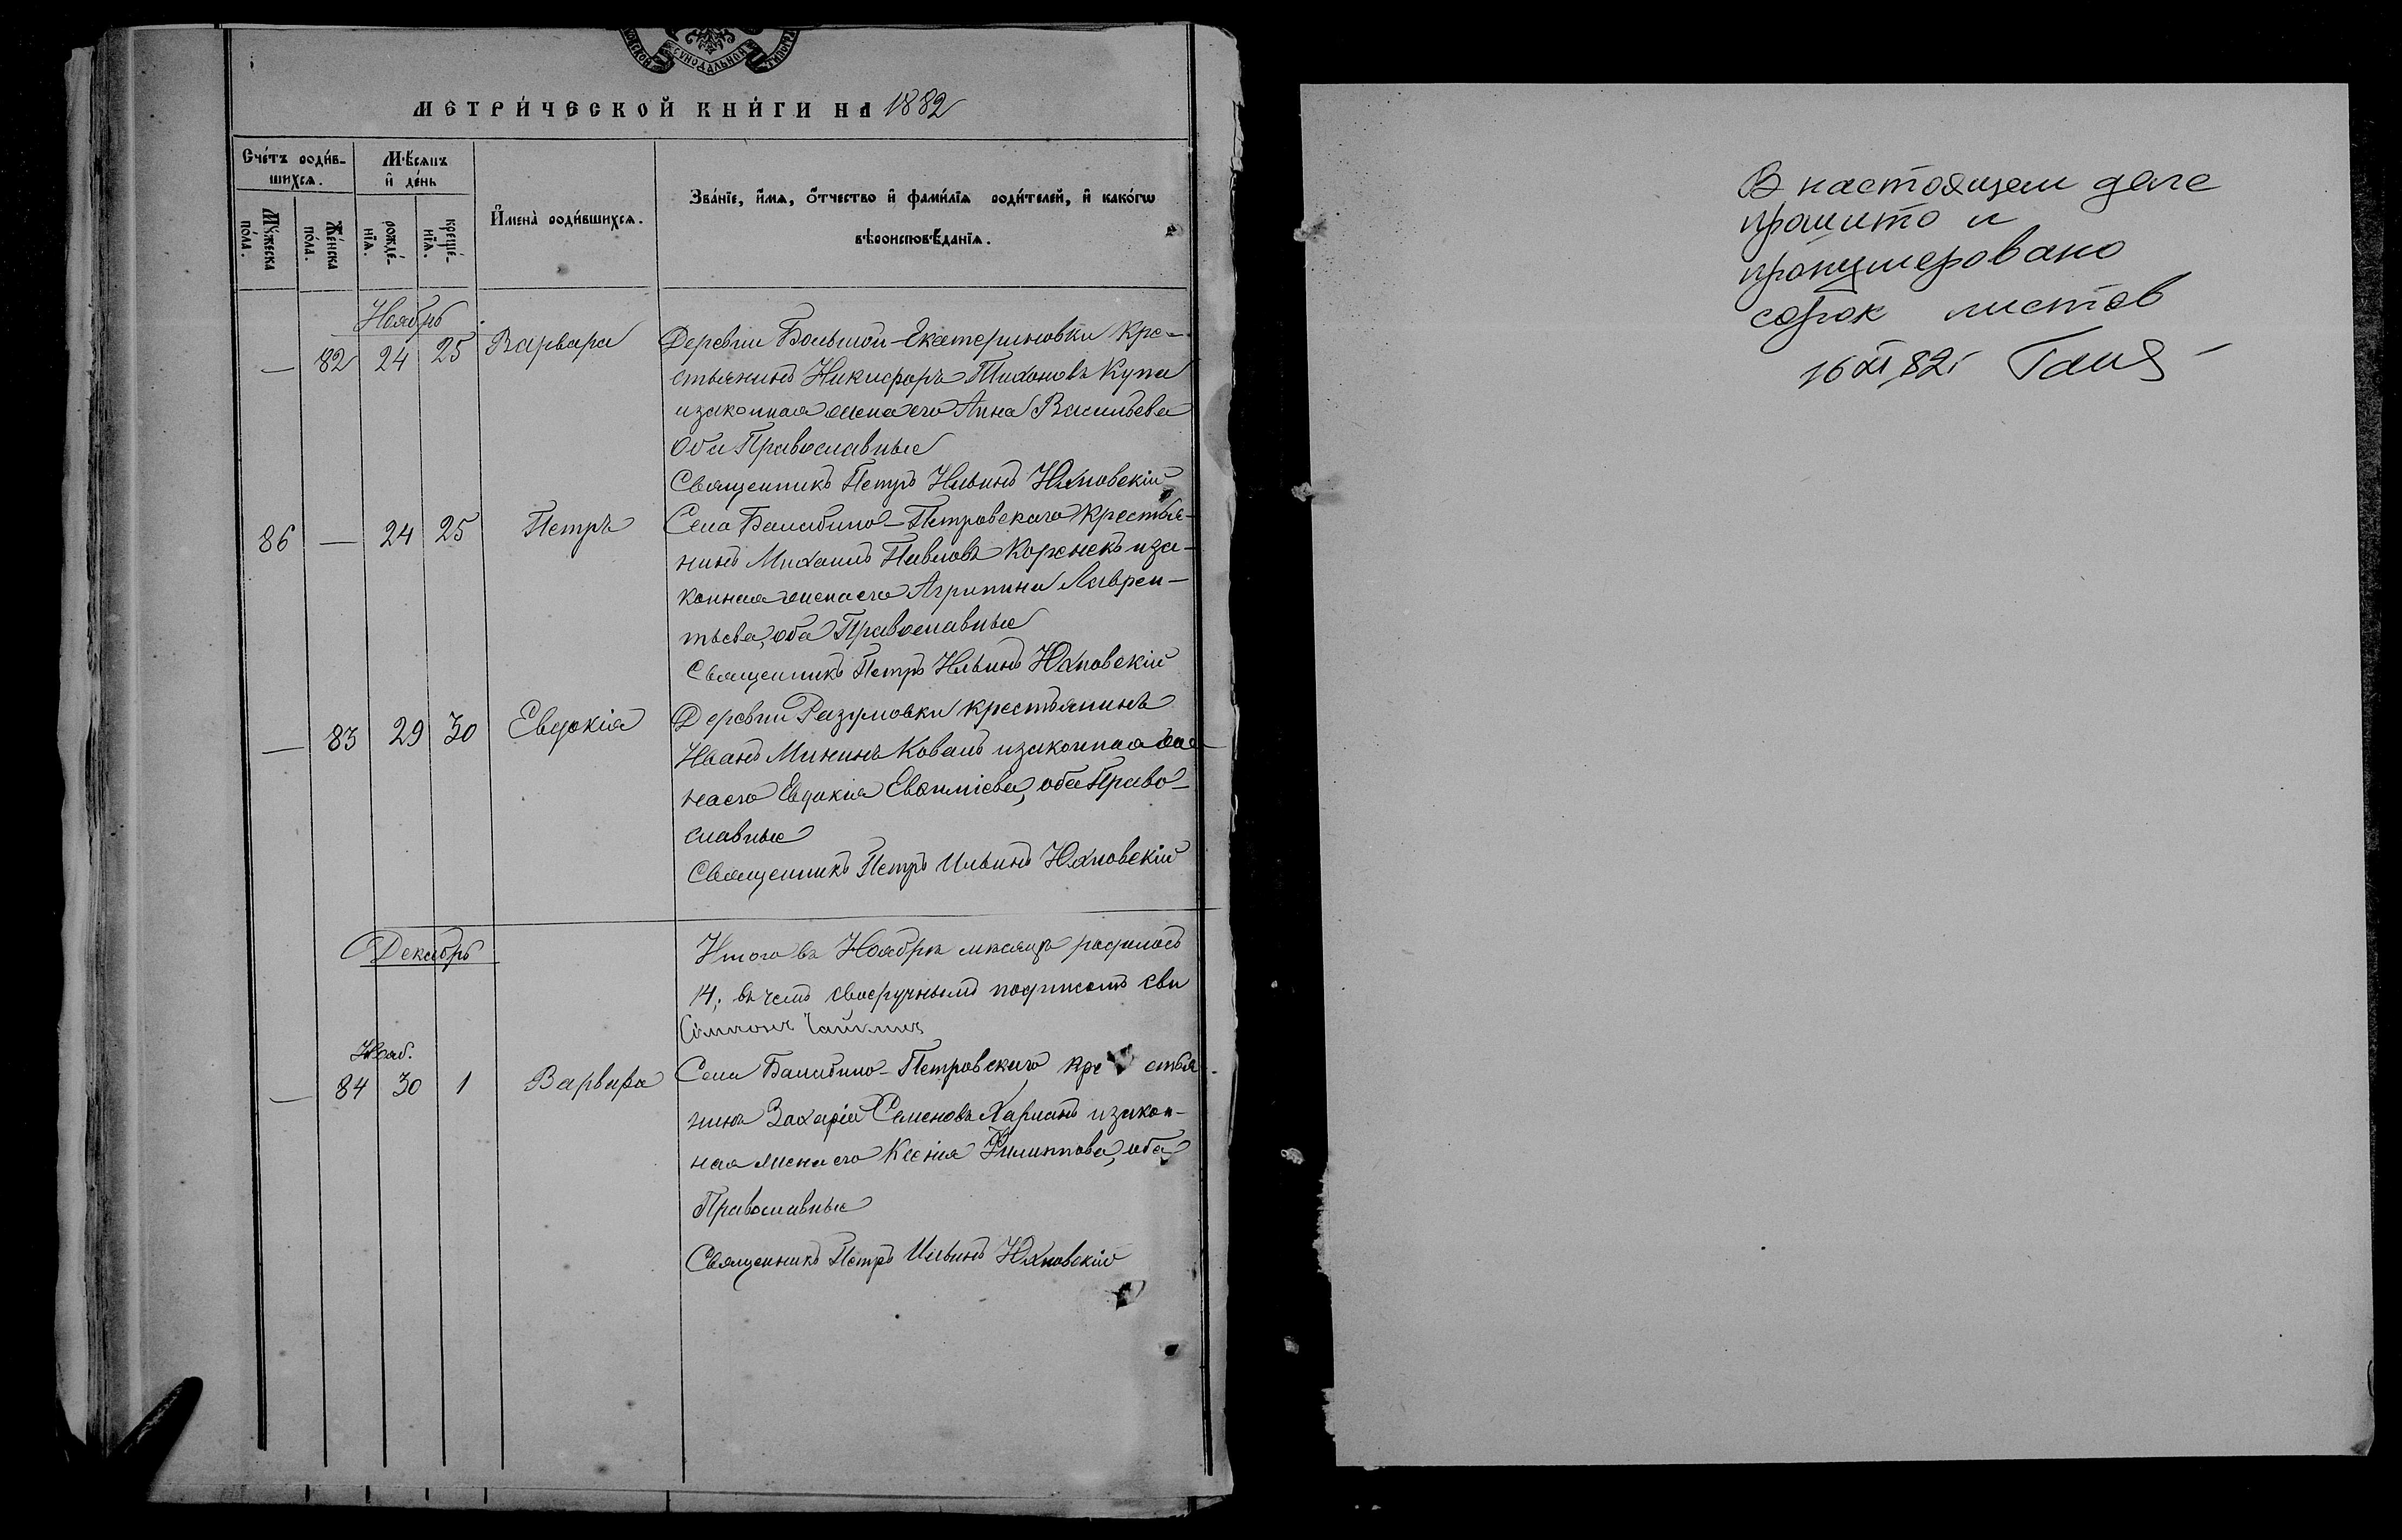 СѴНОДАЛЬНОЙ
МЕТРИ́ЧЕСКОЙ КНИ́ГИ НА 1882
Сче́тъ роди́в-
шихсѧ.
Мѣ́сѧцъ
и҆ де́нь
Мꙋ́жеска
по́ла.
Же́нска
по́ла.
рожде́-
нїѧ.
креще́-
нїѧ.
И҆мена̀ роди́вшихсѧ.
Зва́нїе, и҆́мѧ, ѻ҆́тчество и҆ фами́лїѧ роди́телей, и҆ како́гѡ
вѣроисповѣ́данїѧ.
Ноябрь
— 82 24 25 Варвара Деревни Большой-Екатериновки кре-
стьянинъ Никифоръ Тихоновъ Купа
и законная жена его Анна Васильева
Оба Православные
Священникъ Петръ Ильинъ Юхновскій
86 — 24 25 Петръ Села Балабино-Петровскаго крестья-
нинъ Михаилъ Павловъ Корженекъ и за-
конная жена его Агрипина Лаврен-
тьева, оба Православные
Священникъ Петръ Ильинъ Юхновскій
— 83 29 30 Евдокія Деревни Разумовки крестьянинъ
Иванъ Мининъ Коваль и законная же-
на его Евдокія Евѳиміева, оба Право-
славные
Священникъ Петръ Ильинъ Юхновскій
Декабрь
Итого въ Ноябрѣ мѣсяцѣ родилось
14; въ чемъ своеручнымъ подписомъ сви
Нояб.
— 84 30 1 Варвара Села Балабино-Петровскаго кре стья-
нинъ Захарій Семеновъ Харланъ и закон-
ная жена его Ксенія Филиппова, оба
Православные
Священникъ Петръ Ильинъ Юхновскій
В настоящем деле
прошито и
пронумеровано
сорок листов
16 XI 82г